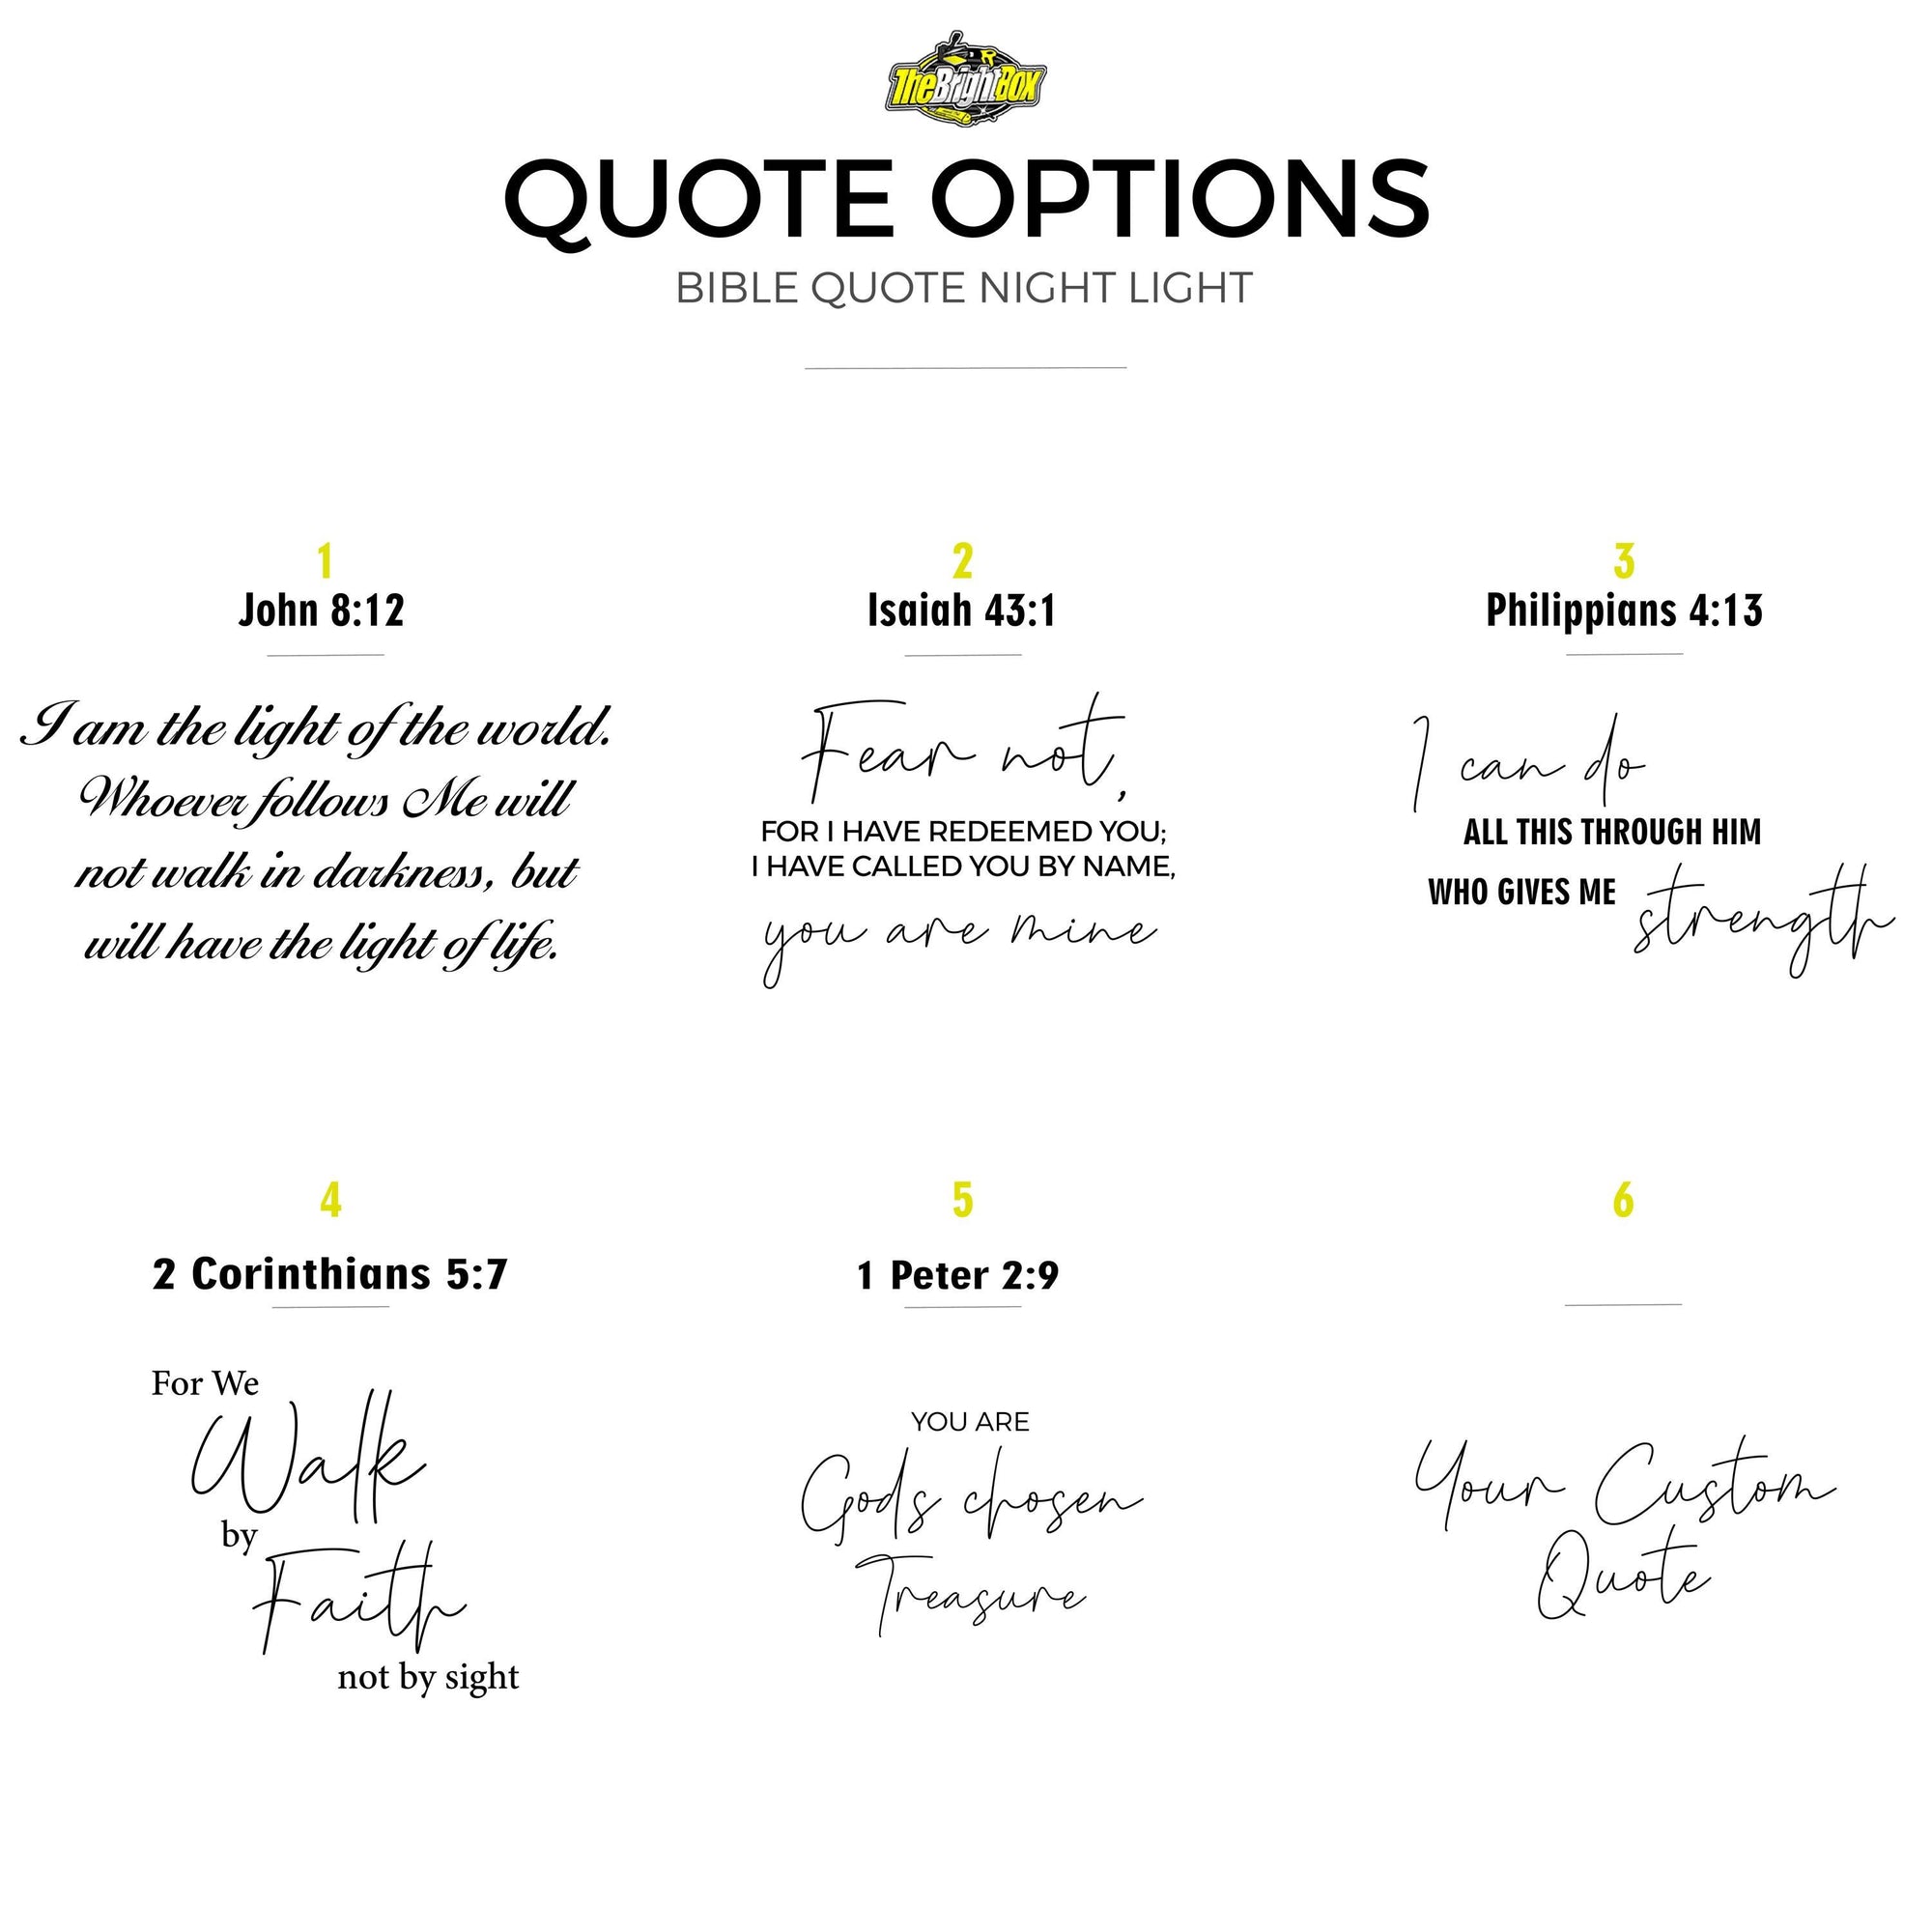 TheBrightBox
QUOTE OPTIONS
BIBLE QUOTE NIGHT LIGHT
1
John 8:12
I am the light of the world.
Whoever follows Me will
not walk in darkness, but
will have the light of life.
2
Isaiah 43:1
Fear not,
FOR I HAVE REDEEMED YOU;
I HAVE CALLED YOU BY NAME,
you are mine
3
Philippians 4:13
I can do
ALL THIS THROUGH HIM
WHO GIVES ME strength
4
2 Corinthians 5:7
For We
Walk
by
Faith
not by sight
5
1 Peter 2:9
YOU ARE
Gods chosen
Treasure
6
Your Custom
Quote